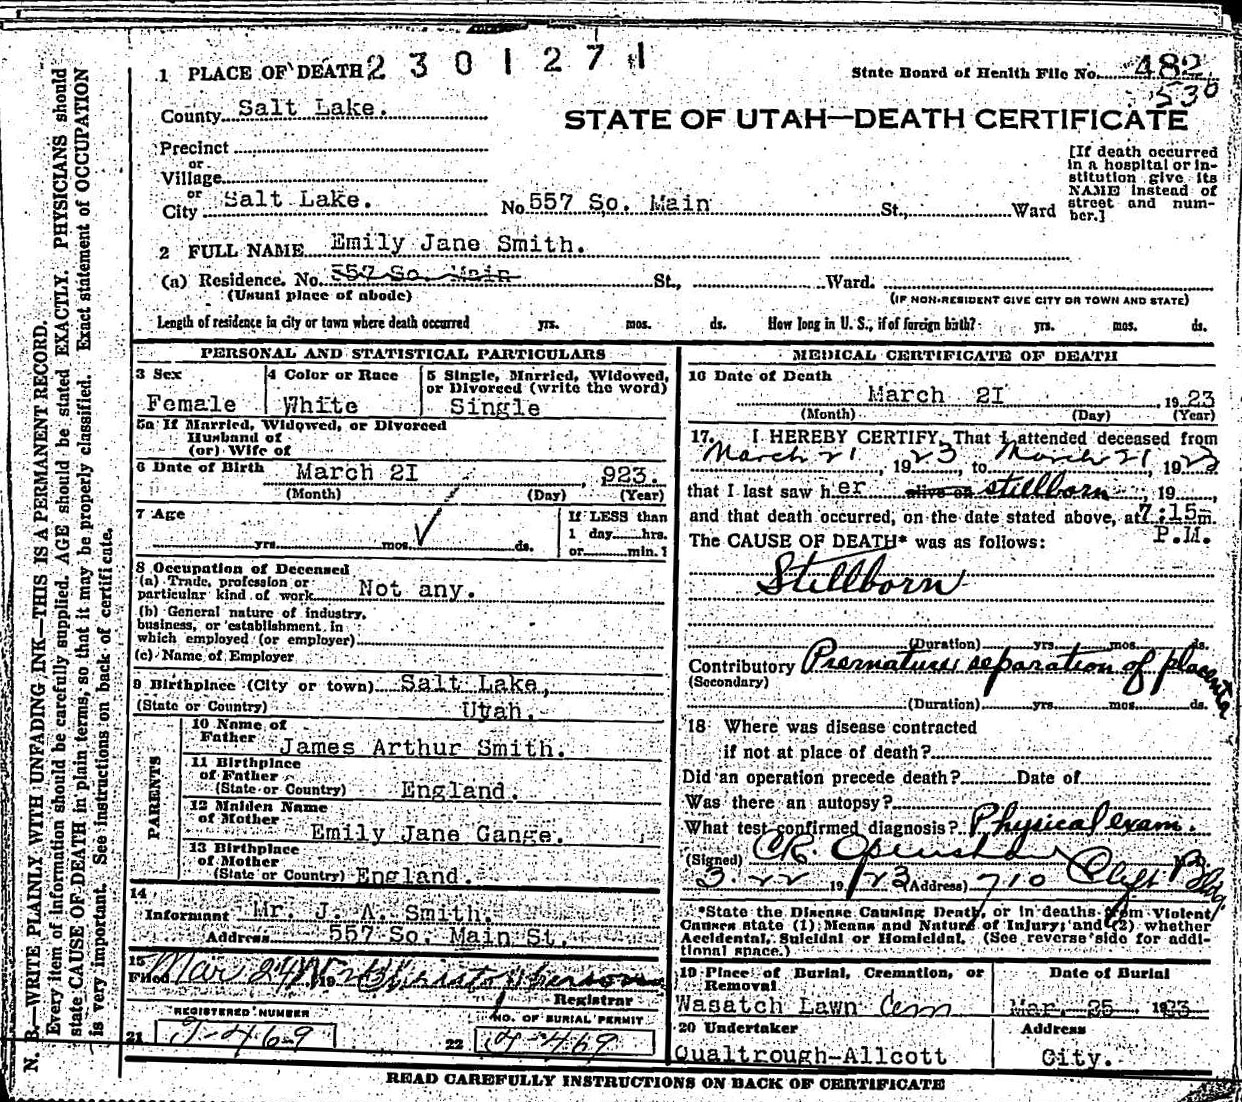 2 3 0 1 2 7 1
1 PLACE OF DEATH
State Board of Health File No. 482
530
County Salt Lake.
STATE OF UTAH—DEATH CERTIFICATE
Precinct
or
Village
or
City Salt Lake. No 557 So. Main St., Ward
[If death occurred
in a hospital or in-
stitution give its
NAME instead of
street and num-
ber.]
2 FULL NAME Emily Jane Smith.
(a) Residence. No. 557 So. Main St., Ward.
(Usual place of abode) (IF NON-RESIDENT GIVE CITY OR TOWN AND STATE)
Length of residence in city or town where death occurred yrs. mos. ds. How long in U. S., if of foreign birth? yrs. mos. ds.
PERSONAL AND STATISTICAL PARTICULARS
3 Sex
Female
4 Color or Race
White
5 Single, Married, Widowed,
or Divorced (write the word)
Single
5a If Married, Widowed, or Divorced
Husband of
(or) Wife of
6 Date of Birth March 2I , 923.
(Month) (Day) (Year)
7 Age
yrs. mos. ds.
If LESS than
1 day hrs.
or min.?
8 Occupation of Deceased
(a) Trade, profession or
particular kind of work Not any.
(b) General nature of industry,
business, or establishment in
which employed (or employer)
(c) Name of Employer
9 Birthplace (City or town) Salt Lake,
(State or Country) Utah.
PARENTS
10 Name of
Father James Arthur Smith.
11 Birthplace
of Father
(State or Country) England.
12 Maiden Name
of Mother Emily Jane Gange.
13 Birthplace
of Mother
(State or Country) England.
14
Informant Mr. J. A. Smith.
Address 557 So. Main St.
15
Filed Mar 24 19
Registrar
REGISTERED NUMBER
21 J-469
NO. OF BURIAL PERMIT
22 J-469
MEDICAL CERTIFICATE OF DEATH
16 Date of Death
March 2I , 1923
(Month) (Day) (Year)
17. I HEREBY CERTIFY, That I attended deceased from
March 21, 1923, to March 21, 1923
that I last saw her alive on stillborn, 19 ,
and that death occurred, on the date stated above, at 7:15 m.
P.M.
The CAUSE OF DEATH* was as follows:
Stillborn
(Duration) yrs. mos. ds.
Contributory Premature separation of placenta
(Secondary)
(Duration) yrs. mos. ds.
18 Where was disease contracted
if not at place of death?
Did an operation precede death? Date of
Was there an autopsy?
What test confirmed diagnosis? Physical exam.
(Signed) CR. Openshaw
3-22 1923 (Address) 710 Clift Bldg.
*State the Disease Causing Death, or in deaths from Violent
Causes state (1) Means and Nature of Injury; and (2) whether
Accidental, Suicidal or Homicidal. (See reverse side for addi-
tional space.)
19 Place of Burial, Cremation, or
Removal
Wasatch Lawn Cem
Date of Burial
Mar. 25 1923
20 Undertaker
Qualtrough-Allcott
Address
City.
READ CAREFULLY INSTRUCTIONS ON BACK OF CERTIFICATE
N. B.—WRITE PLAINLY WITH UNFADING INK—THIS IS A PERMANENT RECORD.
Every item of information should be carefully supplied. AGE should be stated EXACTLY. PHYSICIANS should
state CAUSE OF DEATH in plain terms, so that it may be properly classified. Exact statement of OCCUPATION
is very important. See instructions on back of certificate.